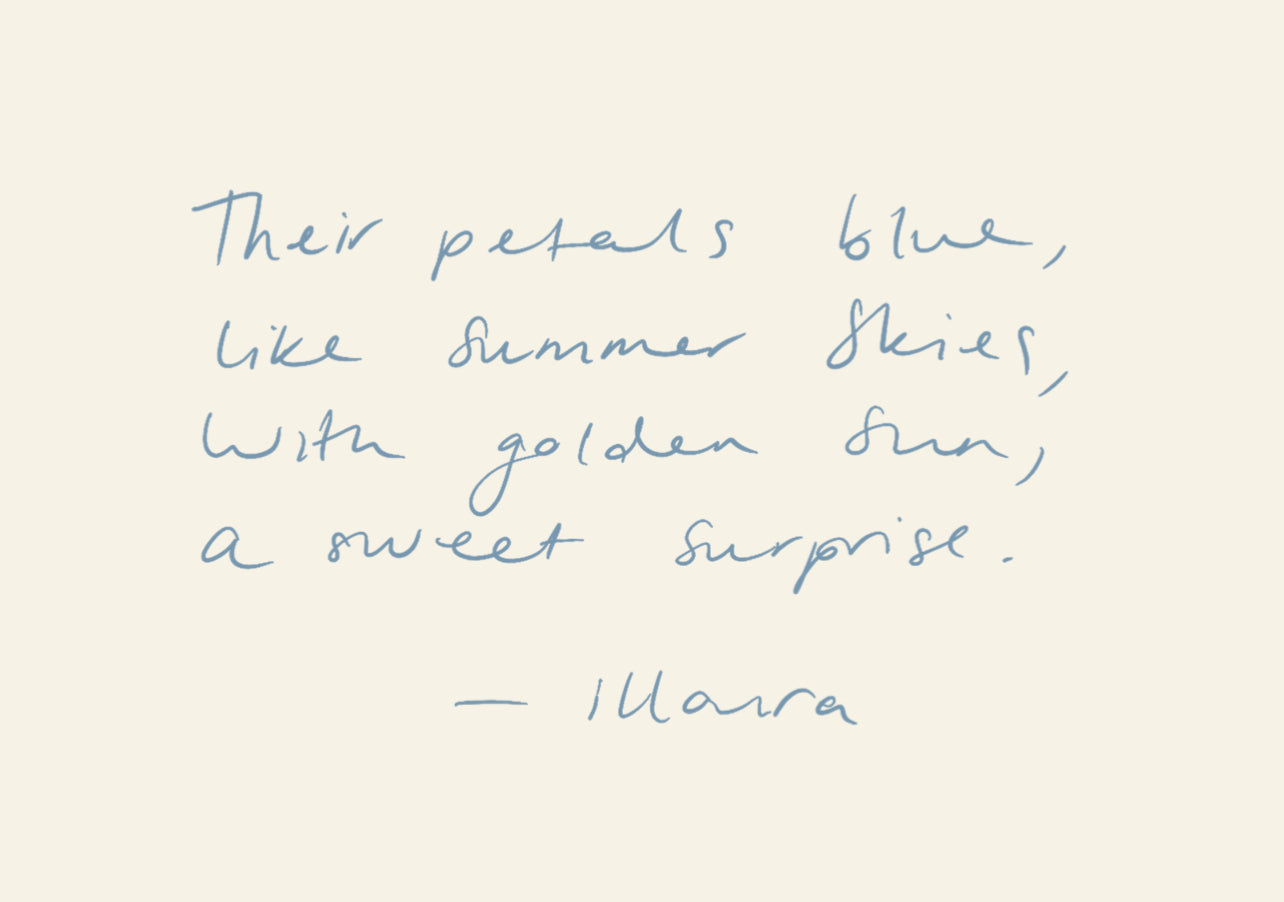 Their petals blue,
like summer skies,
With golden sun,
a sweet surprise.
— illaura